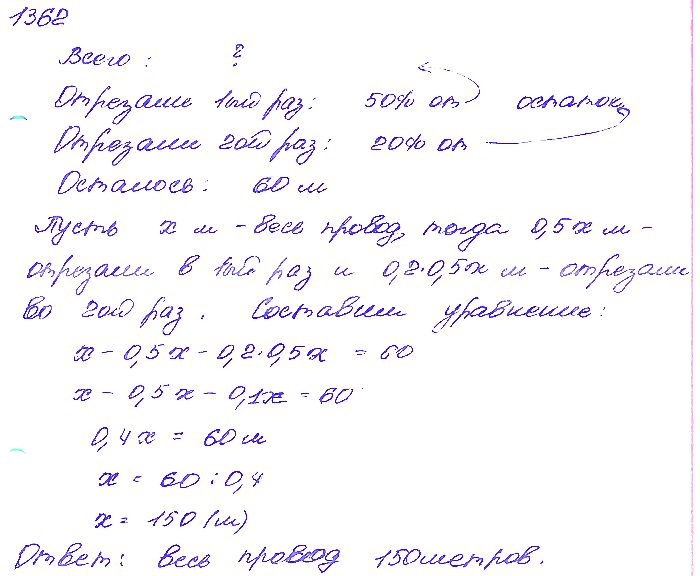 1362
Всего: ?
Отрезали 1ый раз: 50% от остаток
Отрезали 2ой раз: 20% от
Осталось: 60 м
Пусть x м - весь провод, тогда 0,5x м -
отрезали в 1ый раз и 0,2·0,5x м - отрезали
во 2ой раз. Составим уравнение:
x - 0,5x - 0,2·0,5x = 60
x - 0,5x - 0,1x = 60
0,4x = 60 м
x = 60 : 0,4
x = 150 (м)
Ответ: весь провод 150 метров.